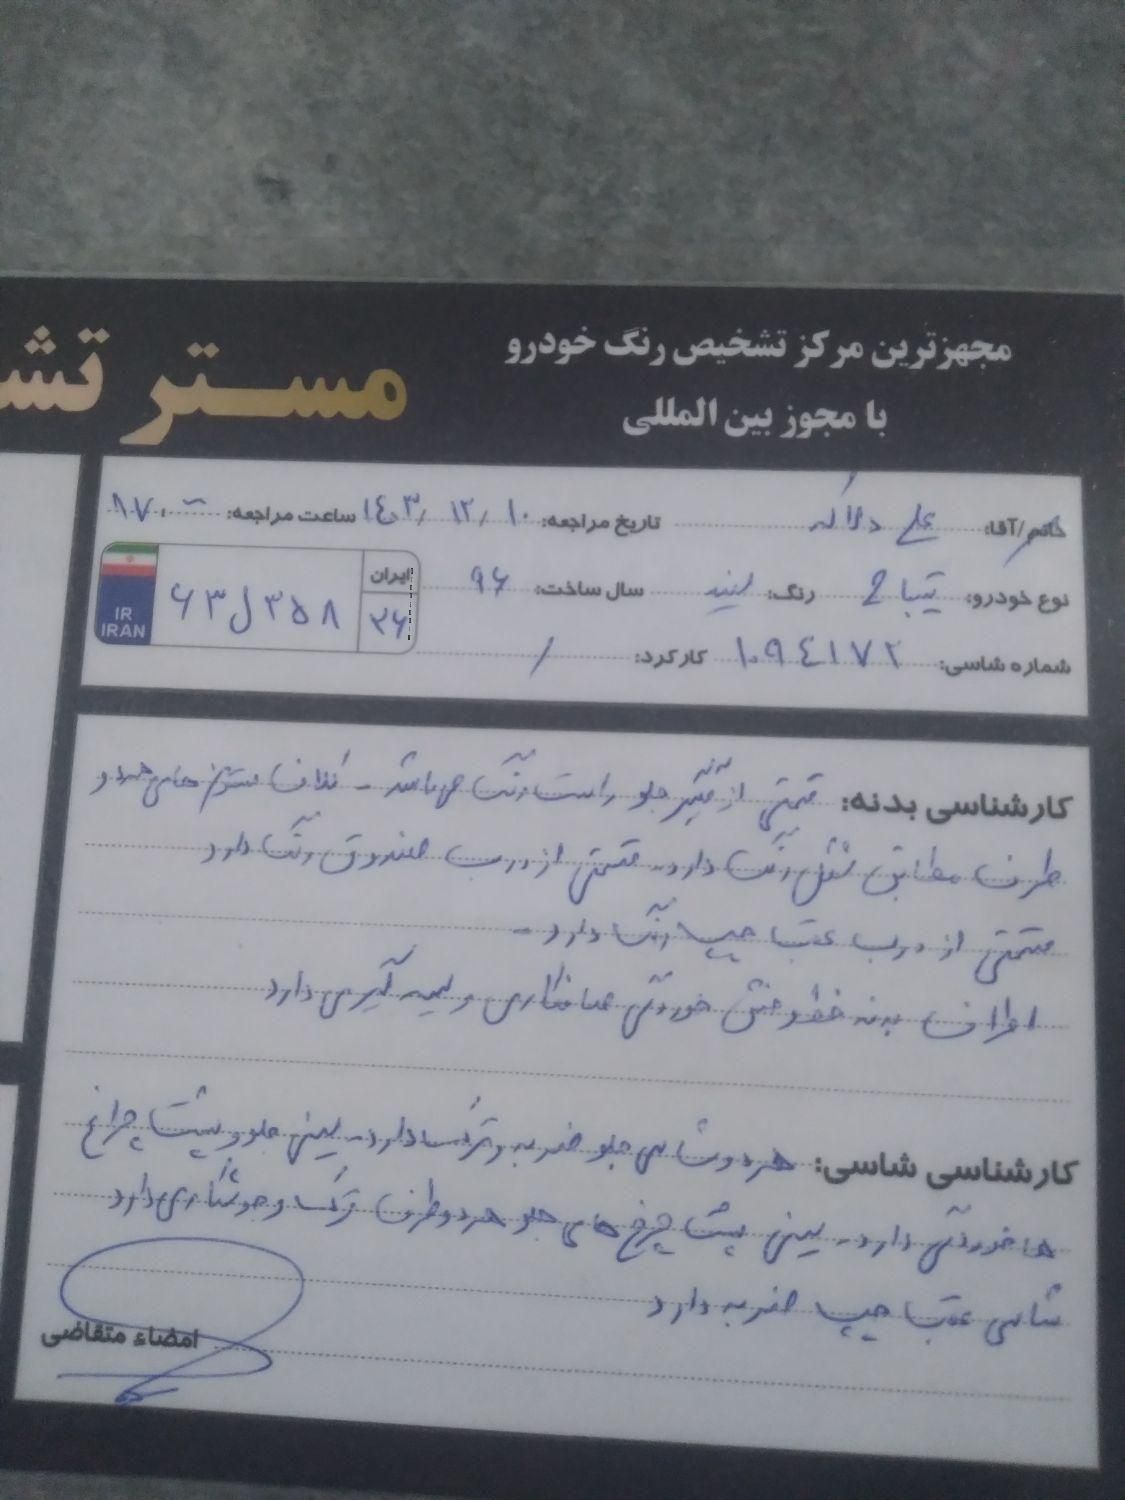 مجهزترین مرکز تشخیص رنگ خودرو
با مجوز بین المللی
مستر تش
خانم/آقا: علی تاریخ مراجعه: ۱۴۰۳/۱۲/۱۰ ساعت مراجعه:
نوع خودرو: تیبا ۲ رنگ: سفید سال ساخت: ۹۶
شماره شاسی: ۱۰۹۴۱۷۲ کارکرد: /
ایران
۳۶
۶۳ل۳۵۸
IR
IRAN
کارشناسی بدنه: قسمتی از گلگیر جلو راست رنگ میباشد - کلاف ستون های هر دو
طرف مطابق شکل رنگ دارد - قسمتی از درب صندوق رنگ دارد
قسمتی از درب عقب چپ رنگ دارد -
اطراف بدنه خط و خش خوردگی صافکاری و لیسه گیری دارد
کارشناسی شاسی: هر دو شاسی جلو ضربه و ترک دارد - سینی جلو و پشت چراغ
ها خوردگی دارد - سینی پشت چرخ های جلو هر دو طرف ترک و جوشکاری دارد
شاسی عقب چپ ضربه دارد
امضاء متقاضی